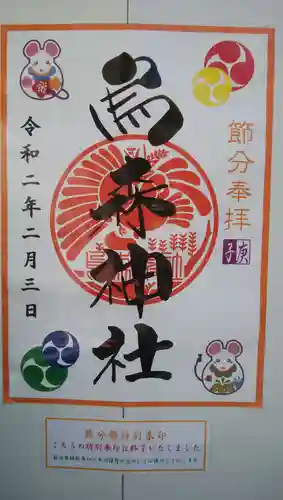 節分奉拝
庚子
烏森神社
令和二年二月三日
節分祭特別朱印
こちらの特別朱印は終了いたしました